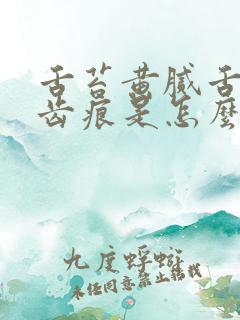 舌苔黄腻舌
齿痕是怎麽
九度蜉蝣
未经同意禁止转载